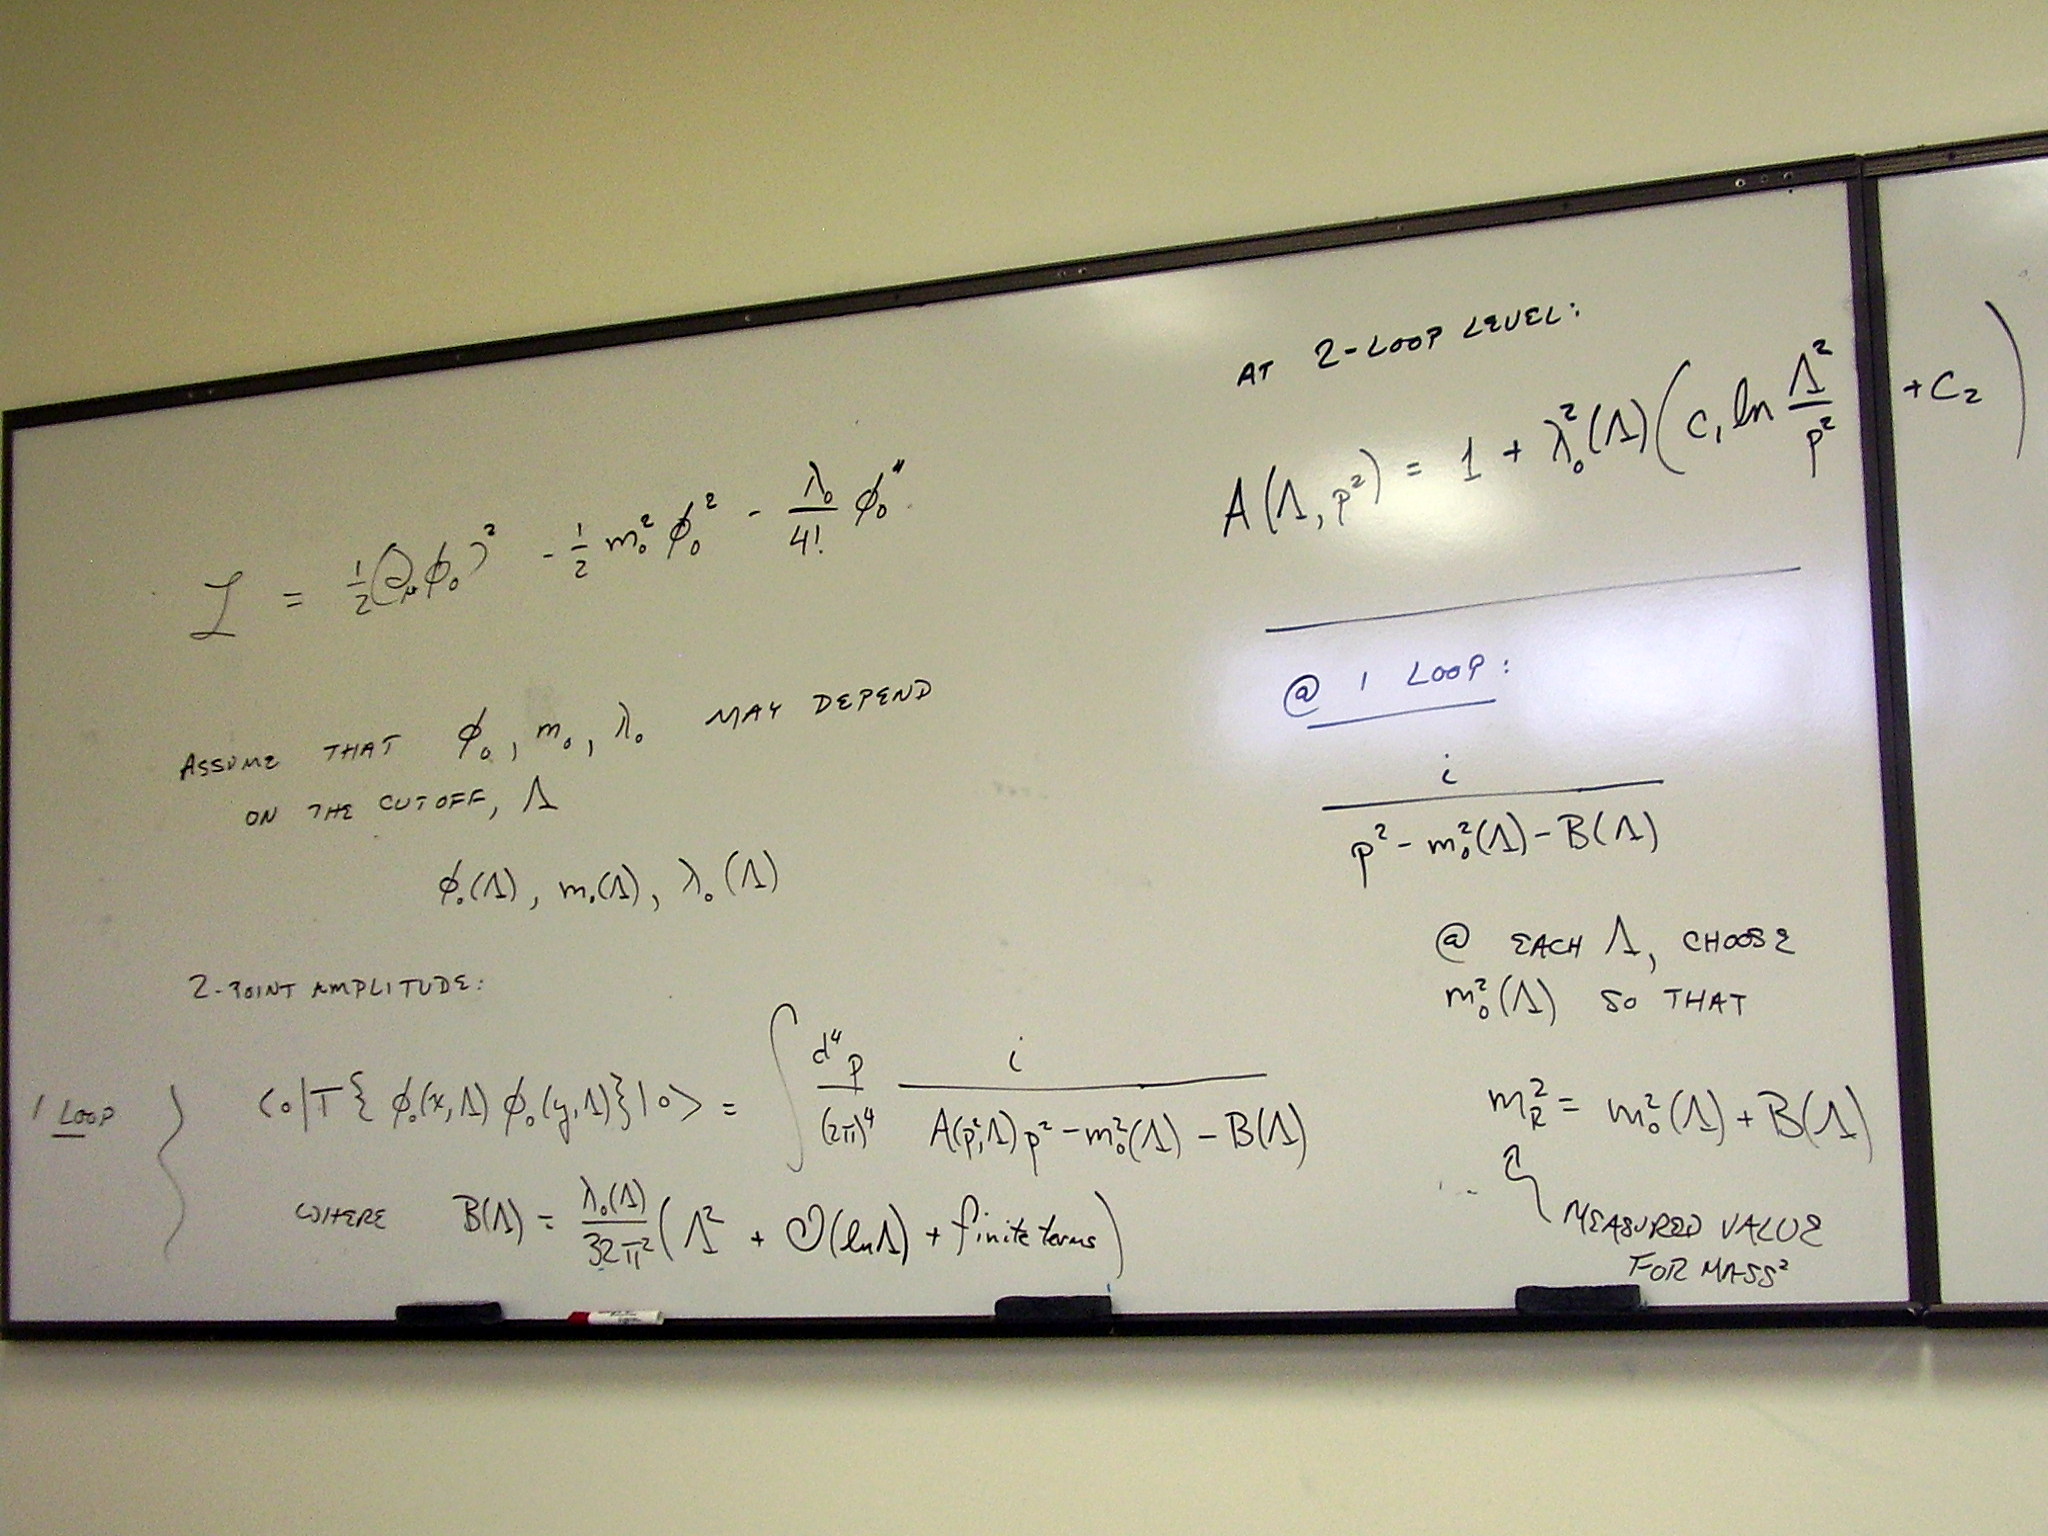 ℒ = 1/2 (∂_μ φ₀)² - 1/2 m₀² φ₀² - λ₀/4! φ₀⁴
ASSUME THAT φ₀, m₀, λ₀ MAY DEPEND
ON THE CUTOFF, Λ
φ₀(Λ), m₀(Λ), λ₀(Λ)
2-POINT AMPLITUDE:
1 LOOP } <0|T{φ₀(x,Λ) φ₀(y,Λ)}|0> = ∫ d⁴p/(2π)⁴ i/(A(p²,Λ)p² - m₀²(Λ) - B(Λ))
WHERE B(Λ) = λ₀(Λ)/32π² (Λ² + O(lnΛ) + finite terms)
AT 2-LOOP LEVEL:
A(Λ, p²) = 1 + λ₀²(Λ)(C₁ ln Λ²/p² + C₂)
@ 1 LOOP:
i/(p² - m₀²(Λ) - B(Λ))
@ EACH Λ, CHOOSE
m₀²(Λ) SO THAT
m_R² = m₀²(Λ) + B(Λ)
MEASURED VALUE
FOR MASS²